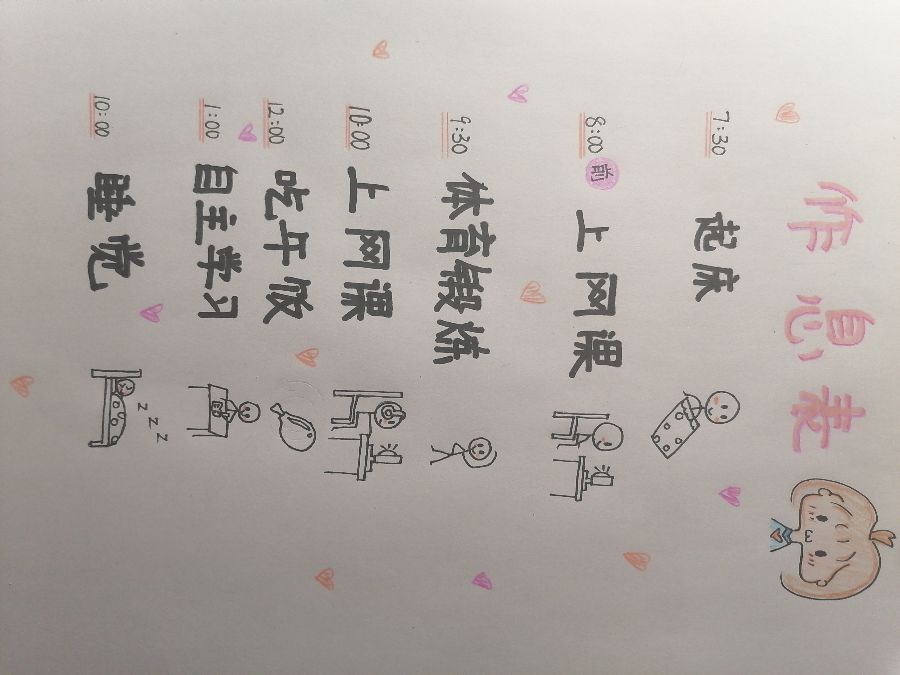 作息表
7:30 起床
8:00前 上网课
9:30 体育锻炼
10:00 上网课
12:00 吃午饭
1:00 自主学习
10:00 睡觉
z z z